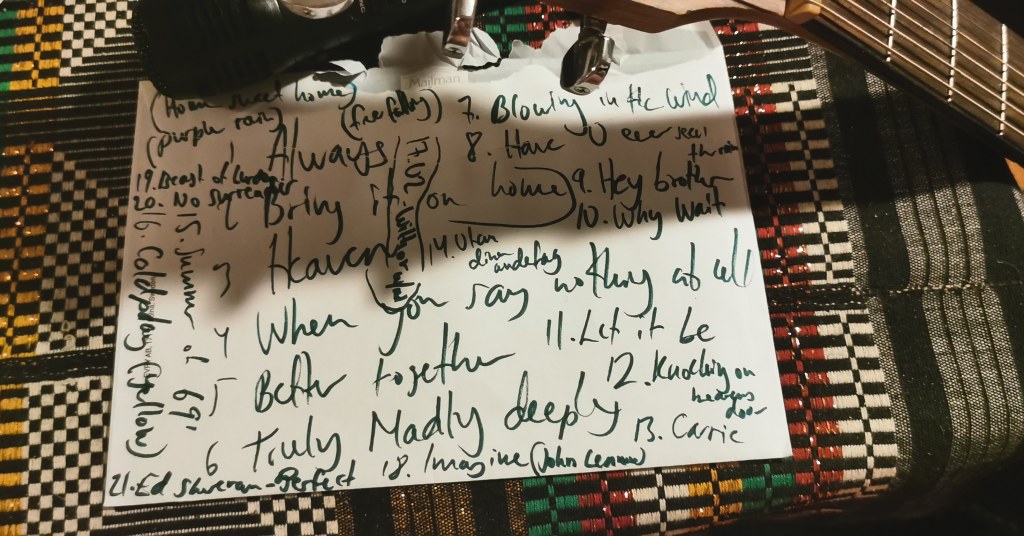 Mailman
(Home sweet home)
(purple rain)
(free falling)
1 Always
2 Bring it on home
3 Heaven
4 When you say nothing at all
5 Better together
6 Truly Madly deeply
7. Blowing in the wind
8. Have U ever seen the rain
9. Hey brother
10. Why Wait
11. Let it be
12. Knocking on heavens door
13. Carrie
14. Utan dina andetag
15. Summer of 69'
16. Coldplay (Yellow)
17. U2. With or w/o
18. Imagine (John Lennon)
19. Beast of
20. No surrender
21. Ed Sheeran - Perfect